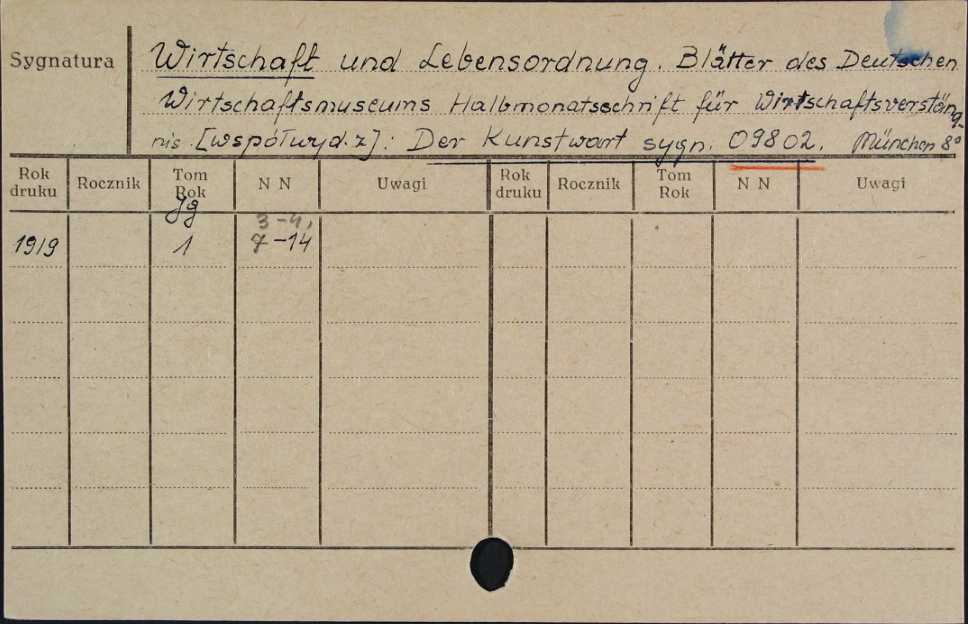 Sygnatura
Wirtschaft und Lebensordnung. Blätter des Deutschen
Wirtschaftsmuseums Halbmonatsschrift für Wirtschaftsverständ-
nis. [współwyd. z]: Der Kunstwart sygn. 09802. München 8°
Rok druku Rocznik Tom Rok N N Uwagi Rok druku Rocznik Tom Rok N N Uwagi
Jg 3-4,
1919 1 7-14